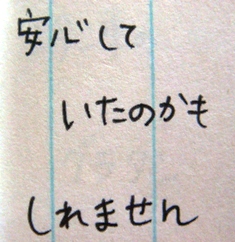 安心して
いたのかも
しれません